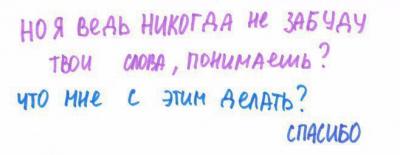 НО Я ВЕДЬ НИКОГДА НЕ ЗАБУДУ
ТВОИ СЛОВА, ПОНИМАЕШЬ?
ЧТО МНЕ С ЭТИМ ДЕЛАТЬ?
СПАСИБО